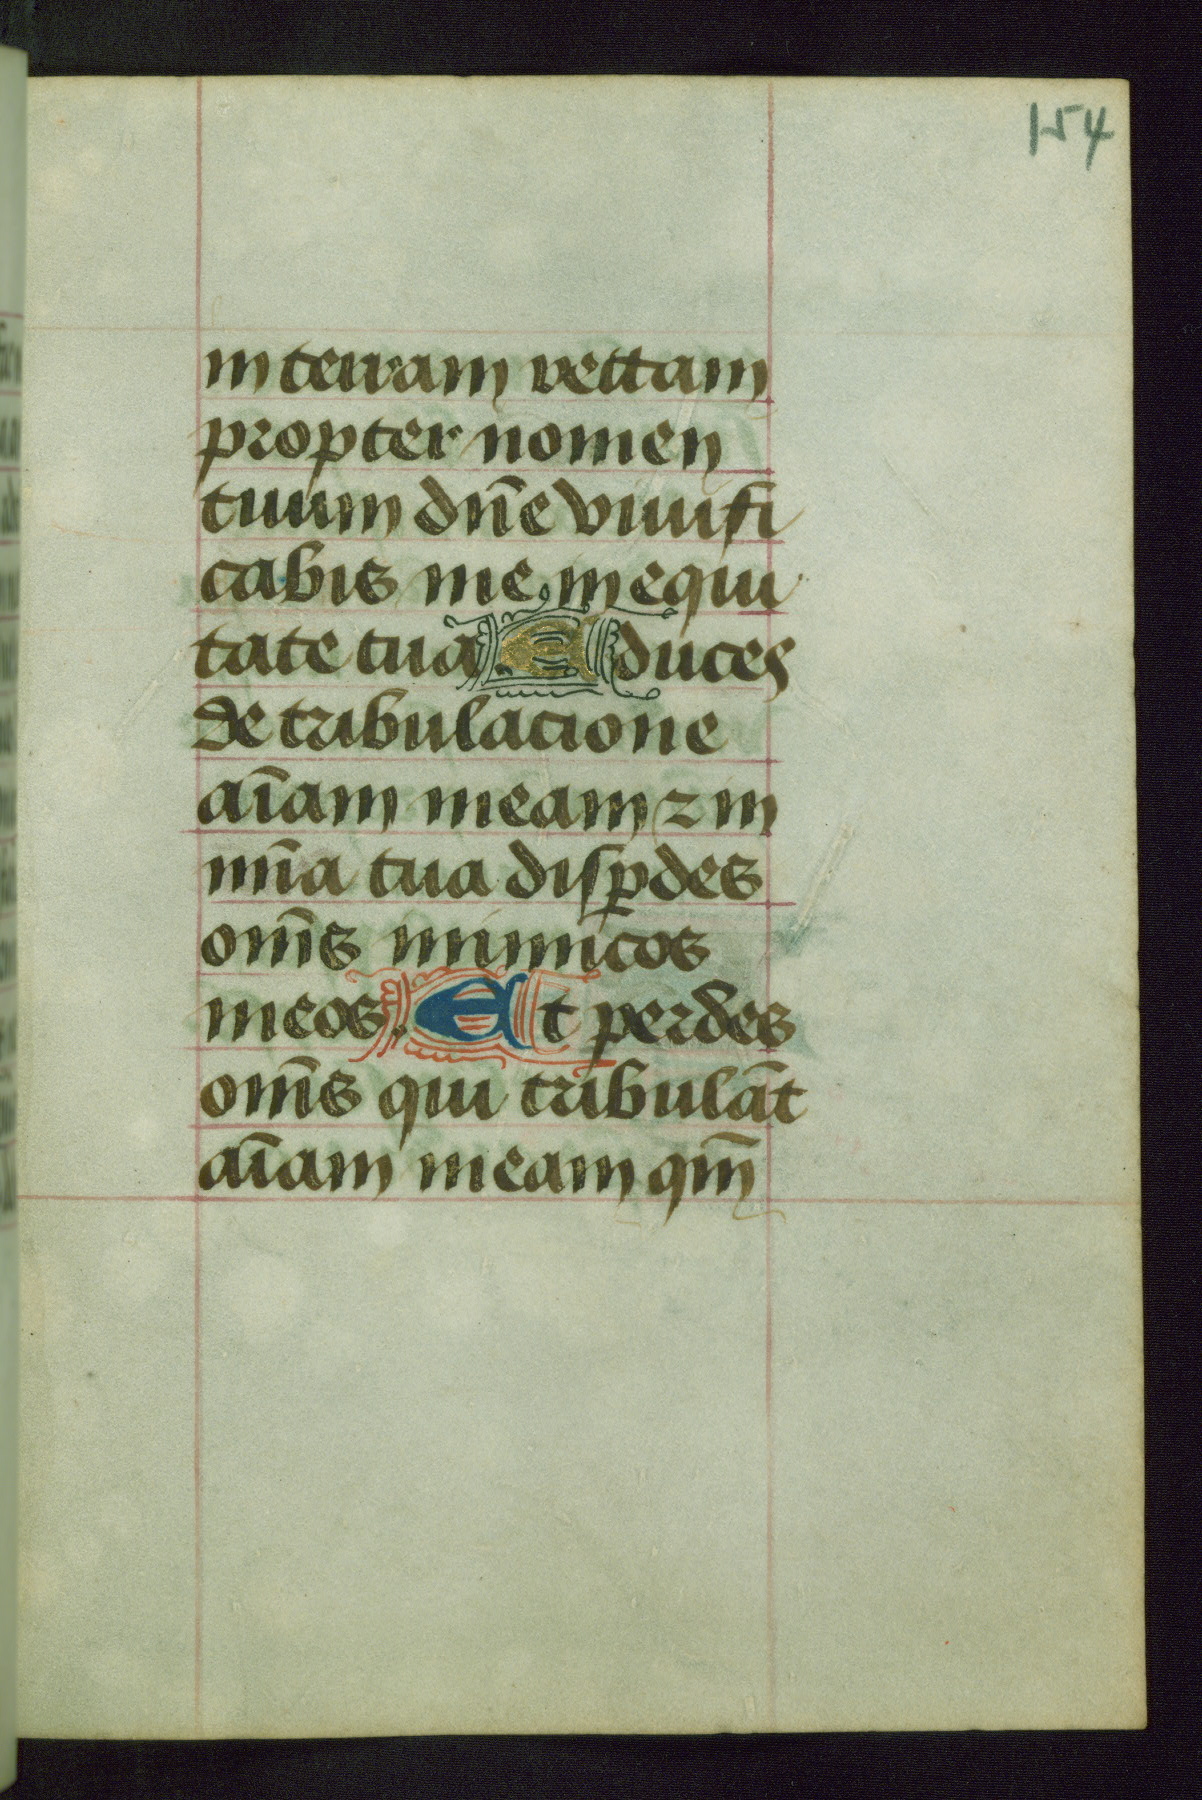 154
in terram rectam
propter nomen
tuum dn̄e viuifi
cabis me. in equi
tate tua. Educes
de tribulacione
aīam meam ⁊ in
mīa tua disꝑdes
om̄s inimicos
meos. Et perdes
om̄s qui tribulāt
aīam meam qm̄